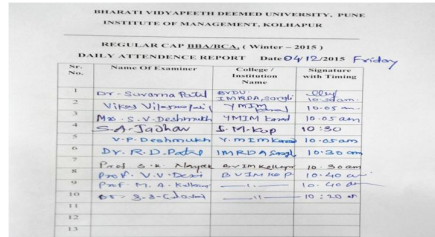 BHARATI VIDYAPEETH DEEMED UNIVERSITY, PUNE
INSTITUTE OF MANAGEMENT, KOLHAPUR
REGULAR CAP BBA/BCA, ( Winter – 2015 )
DAILY ATTENDENCE REPORT Date 04/12/2015 Friday
Sr. No. Name Of Examiner College / Institution Name Signature with Timing
1 Dr. Suvarna Patil BVDU IMRDA, Sangli 10.30 am
2 Vikas YMIM 10.05 am
3 Mr. S.V. Deshmukh YMIM Karad 10.05 am
4 S.A. Jadhav I.M. Kop 10:30
5 V.P. Deshmukh Y.M.IM Karad 10.05 am
6 Dr. R.D. Patil IMRDA Sangli 10.30 am
7 Prof. S.R. BVIM Kolhapur 10.30 am
8 Prof. V.V. Desai BVIM KOP 10.40 am
9 Prof. M.A. —11— 10.40 am
10 —11— 10:20
11
12
13